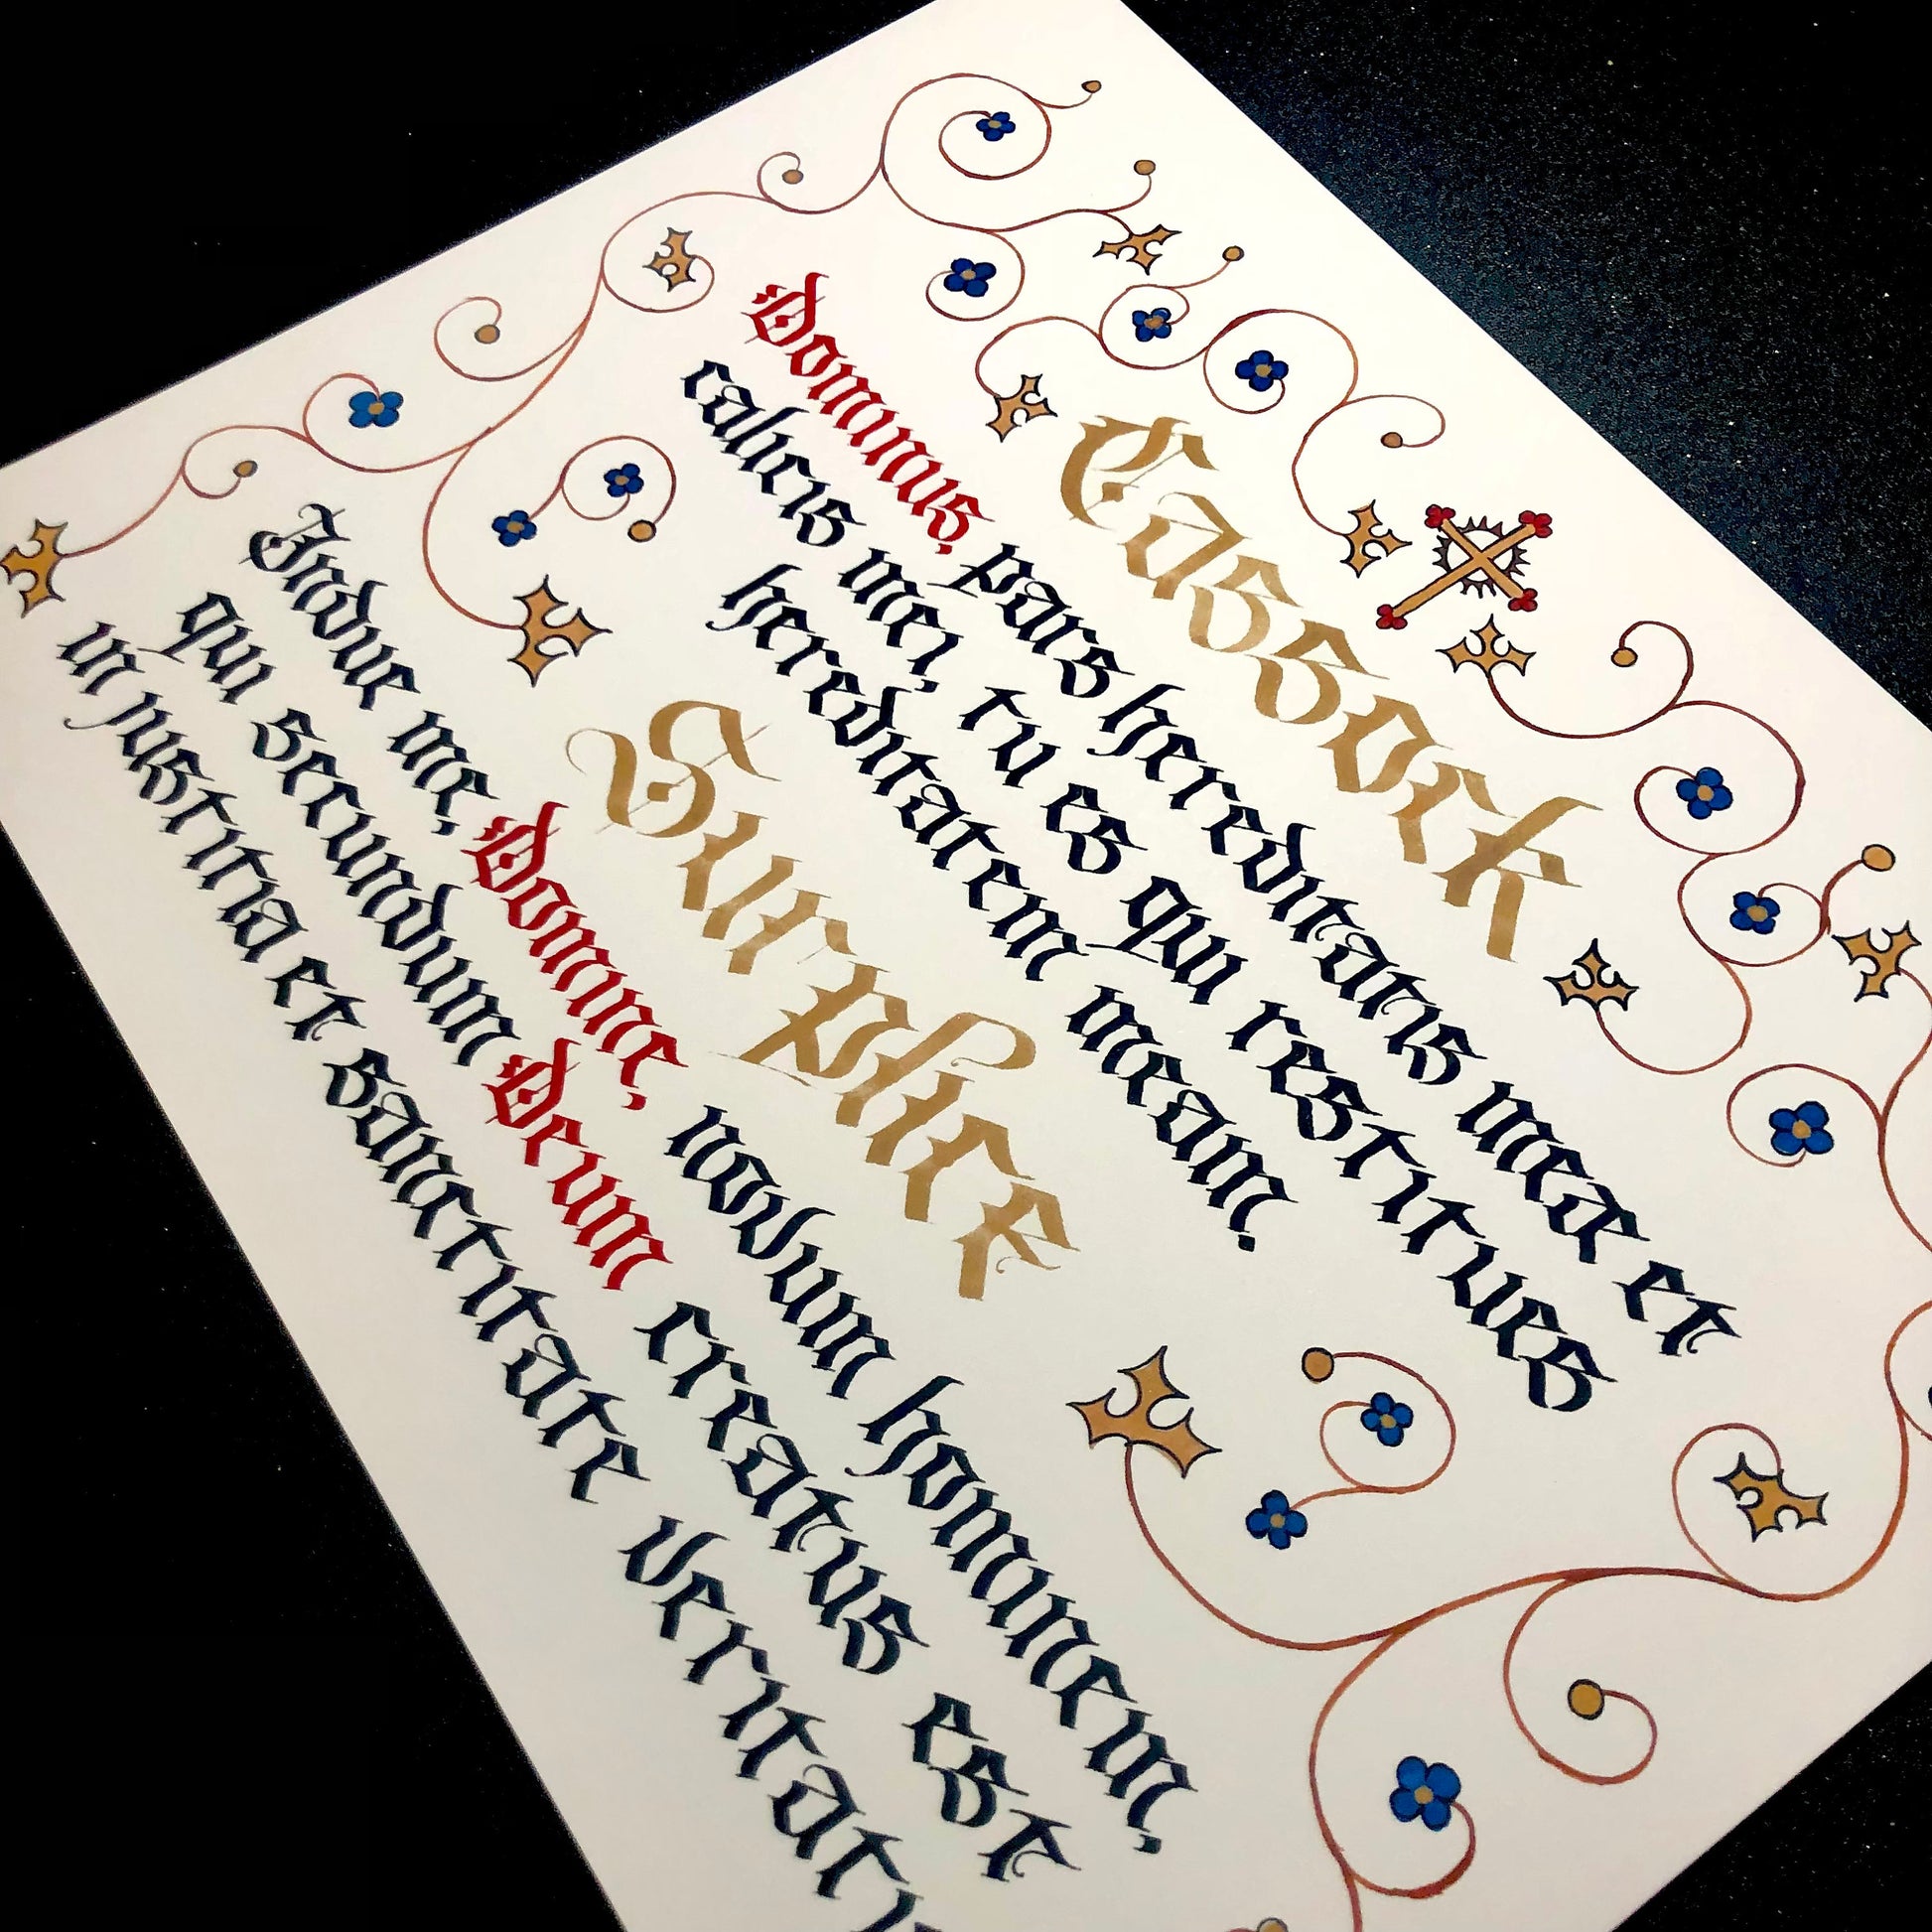 Cassock
Dominus, pars hereditatis meæ et
calicis mei, tu es qui restitues
hereditatem meam.
Surplice
Indue me, Domine, novum hominem,
qui secundum Deum creatus est
in justitia et sanctitate veritat